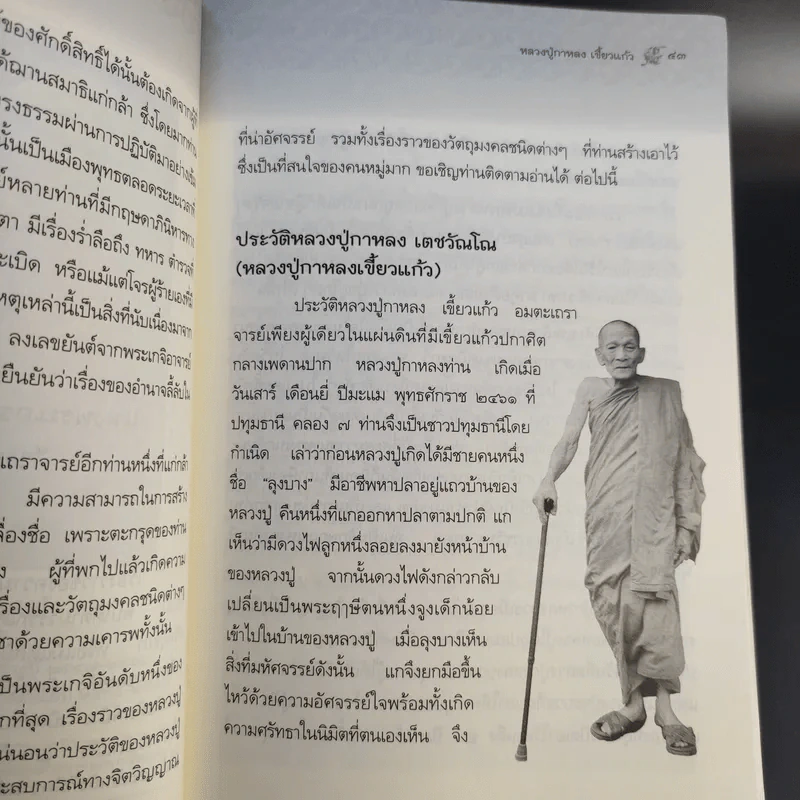 ของศักดิ์สิทธิ์ได้นั้นต้องเกิดจาก
ได้ฌานสมาธิแก่กล้า ซึ่งโดยมากท่าน
รงธรรมผ่านการปฏิบัติมาอย่าง
นั้นเป็นเมืองพุทธตลอดระยะเวลา
หลายท่านที่มีกฤษดาภินิหารทาง
ตา มีเรื่องร่ำลือถึง ทหาร ตำรวจที่
ะเบิด หรือแม้แต่โจรผู้ร้ายเองที่มี
หตุเหล่านี้เป็นสิ่งที่นับเนื่องมาจาก
ลงเลขยันต์จากพระเกจิอาจารย์
ยืนยันว่าเรื่องของอำนาจลี้ลับใน
เถราจารย์อีกท่านหนึ่งที่แก่กล้า
มีความสามารถในการสร้าง
ลื่องชื่อ เพราะตะกรุดของท่าน
ง ผู้ที่พกไปแล้วเกิดความ
รื่องและวัตถุมงคลชนิดต่างๆ
ชาด้วยความเคารพทั้งนั้น
ป็นพระเกจิอันดับหนึ่งของ
กที่สุด เรื่องราวของหลวงปู่
น่นอนว่าประวัติของหลวงปู่
ะสบการณ์ทางจิตวิญญาณ
หลวงปู่กาหลง เขี้ยวแก้ว ๔๓
ที่น่าอัศจรรย์ รวมทั้งเรื่องราวของวัตถุมงคลชนิดต่างๆ ที่ท่านสร้างเอาไว้
ซึ่งเป็นที่สนใจของคนหมู่มาก ขอเชิญท่านติดตามอ่านได้ ต่อไปนี้
ประวัติหลวงปู่กาหลง เตชวัณโณ
(หลวงปู่กาหลงเขี้ยวแก้ว)
ประวัติหลวงปู่กาหลง เขี้ยวแก้ว อมตะเถรา
จารย์เพียงผู้เดียวในแผ่นดินที่มีเขี้ยวแก้วปกาศิต
กลางเพดานปาก หลวงปู่กาหลงท่าน เกิดเมื่อ
วันเสาร์ เดือนยี่ ปีมะแม พุทธศักราช ๒๔๖๑ ที่
ปทุมธานี คลอง ๗ ท่านจึงเป็นชาวปทุมธานีโดย
กำเนิด เล่าว่าก่อนหลวงปู่เกิดได้มีชายคนหนึ่ง
ชื่อ "ลุงบาง" มีอาชีพหาปลาอยู่แถวบ้านของ
หลวงปู่ คืนหนึ่งที่แกออกหาปลาตามปกติ แก
เห็นว่ามีดวงไฟลูกหนึ่งลอยลงมายังหน้าบ้าน
ของหลวงปู่ จากนั้นดวงไฟดังกล่าวกลับ
เปลี่ยนเป็นพระฤๅษีตนหนึ่งจูงเด็กน้อย
เข้าไปในบ้านของหลวงปู่ เมื่อลุงบางเห็น
สิ่งที่มหัศจรรย์ดังนั้น แกจึงยกมือขึ้น
ไหว้ด้วยความอัศจรรย์ใจพร้อมทั้งเกิด
ความศรัทธาในนิมิตที่ตนเองเห็น จึง